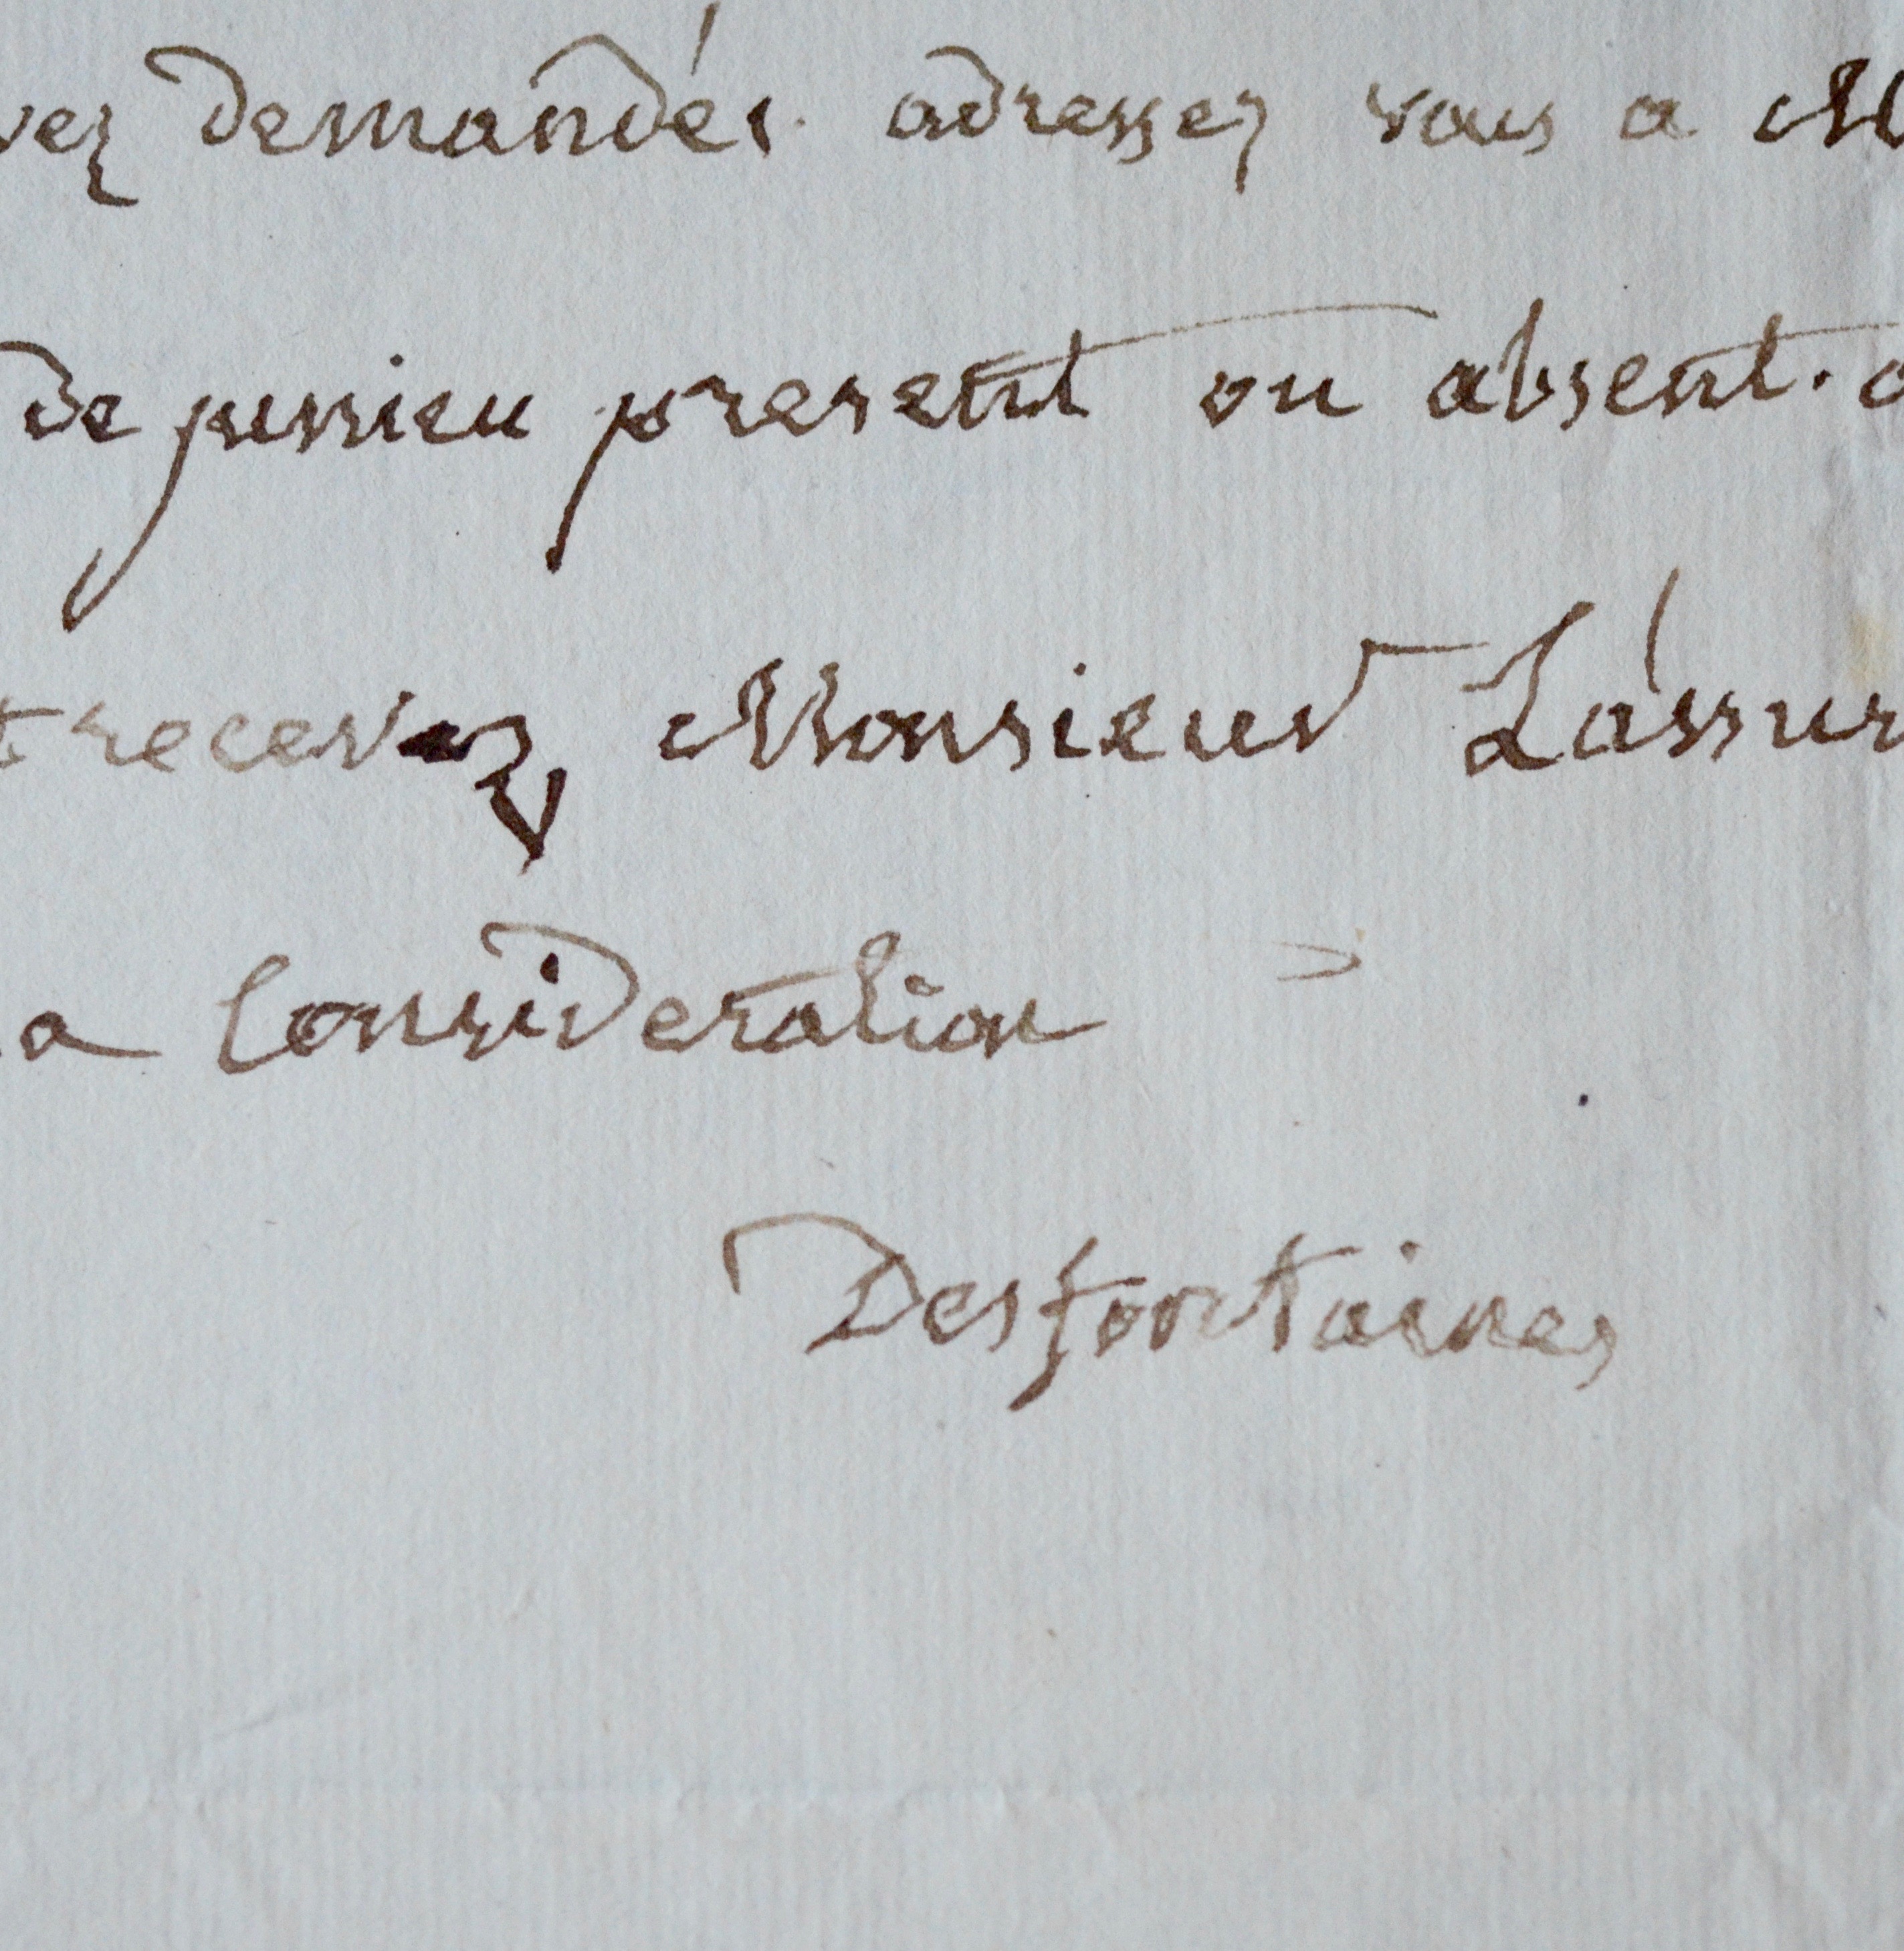 vez demandés. adressez vous a M
De jussieu present ou absent.
t recevez Monsieur L'assur
a Consideration
Desfontaines